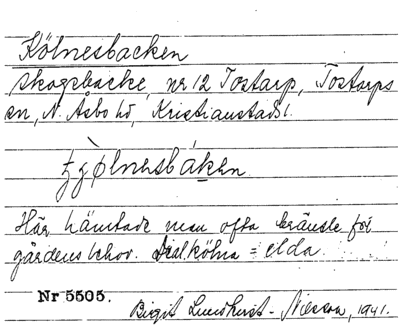 Kölnesbacken
skogsbacke, nr 12 Tostarp, Tostarps
sn, N. Åsbo hd, Kristianstads l.
ʒʒølnesbáken.
Här hämtade man ofta bränsle för
gårdens behov. Dial. kölna = elda.
Nr 5505.
Birgit Lundkvist-Nilsson, 1941.